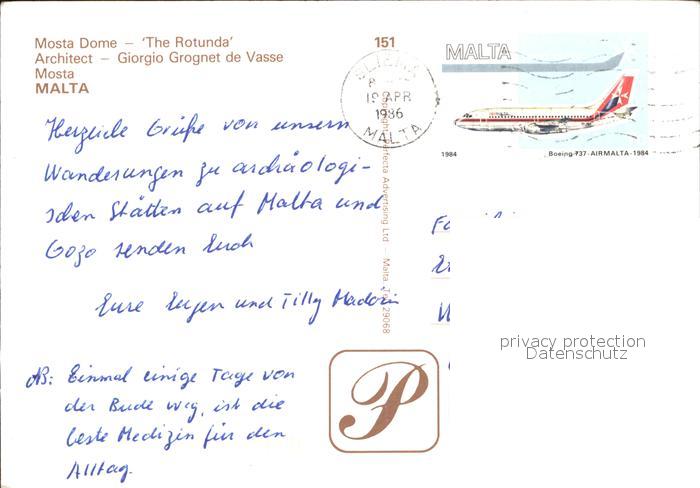 Mosta Dome – ‘The Rotunda’
Architect – Giorgio Grognet de Vasse
Mosta
MALTA
151
MALTA
1984
Boeing-737-AIRMALTA-1984
SLIEMA
19 APR
1986
MALTA
Herzliche Grüße von unsern
Wanderungen zu archäologi-
schen Stätten auf Malta und
Gozo senden Euch
Eure Eugen und Tilly
NB: Einmal einige Tage von
der Bude weg, ist die
beste Medizin für den
Alltag.
Perfecta Advertising Ltd — Malta Tel. 29068
P
privacy protection
Datenschutz